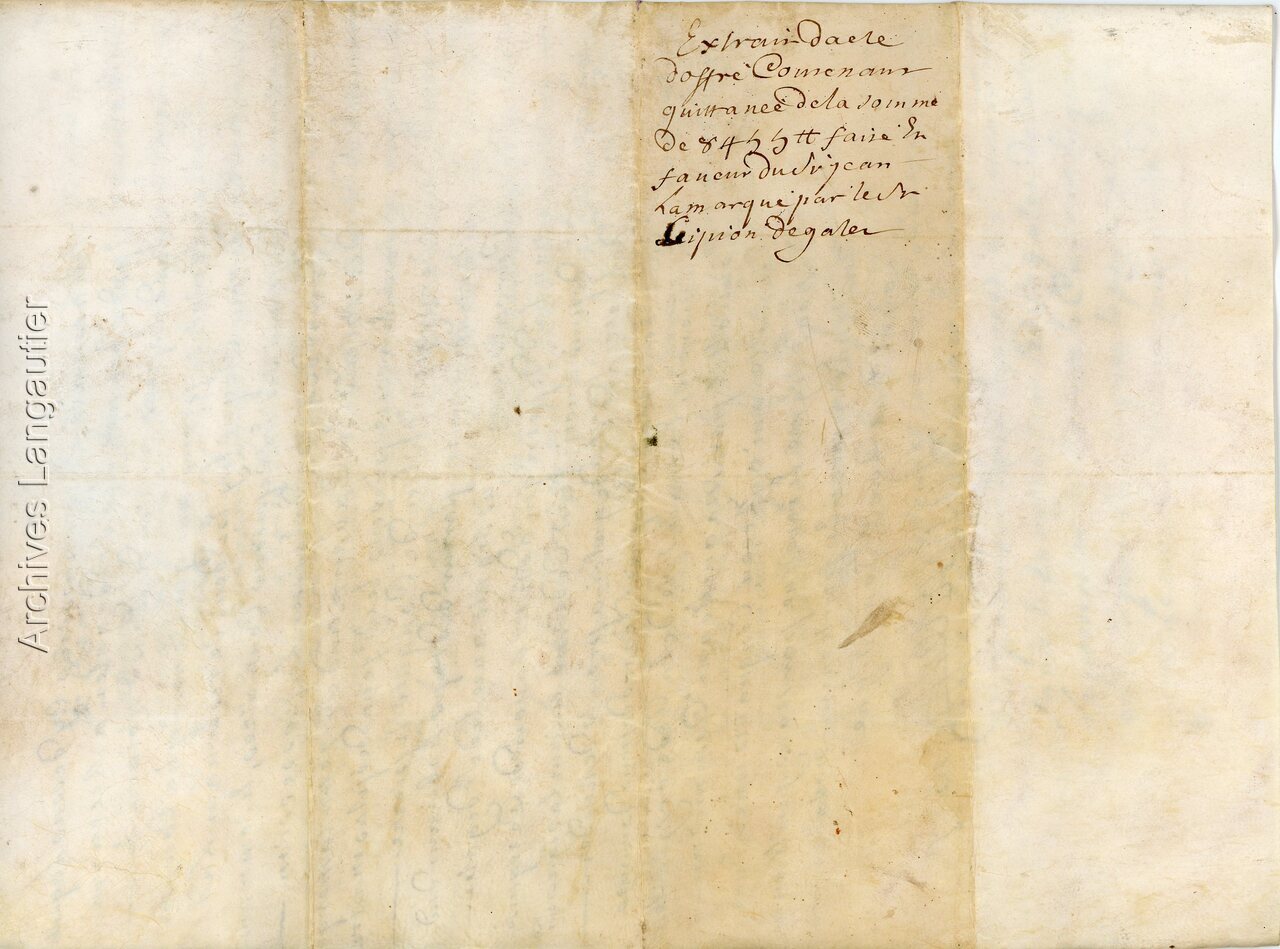 Extrait dacte
doffre Contenant
quittance de la somme
de 8455 ₶ faite En
faveur du Sr jean
Lamarque par le Sr
Sipion degalet
Archives Langautier